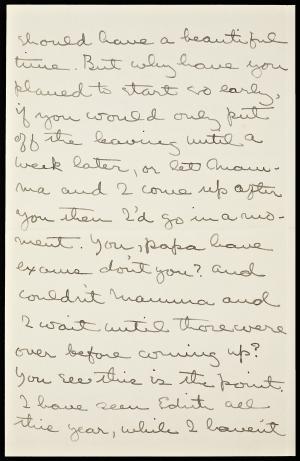 should have a beautiful
time. But why have you
planed to start so early,
if you would only put
off the leaving until a
week later, or let Mam-
ma and I come up after
you then I'd go in a mo-
ment. You, papa have
exams don't you? and
couldn't Mamma and
I wait until those were
over before coming up?
You see this is the point.
I have seen Edith all
this year, while I haven't